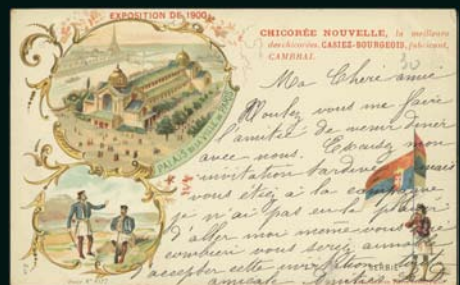 EXPOSITION DE 1900
CHICORÉE NOUVELLE, la meilleure
des chicorées. CASIEZ-BOURGEOIS, fabricant,
CAMBRAI.
PALAIS DE LA VILLE DE PARIS
Ma Chère amie
Voulez vous me faire
l'amitié de venir diner
avec nous. Excusez mon
invitation tardive mais
vous étiez à la campagne
je n'ai pas eu le plaisir
d'aller moi même vous
combien vous serez aimable
accepter cette invitation
amicale
SERBIE